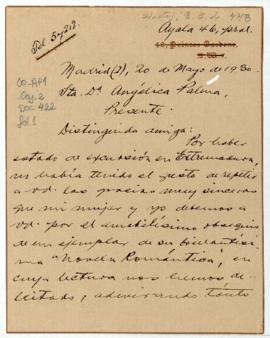 Tel. 50212.
Ayala 46, pral.
Madrid (2), 20 de Mayo de 1930.
Sta. Dª Angélica Palma,
Presente.
CO-AP1
Caj. 2
DOC 422
fol. 1
Distinguida amiga:
Por haber
estado de excursión en Extremadura,
no había tenido el gusto de repetir
a vd. las gracias muy sinceras
que mi mujer y yo debemos a
vd. por el amabilísimo obsequio
de un ejemplar de su
"Novela Romántica", en
cuya lectura nos hemos de-
leitado, admirando tanto